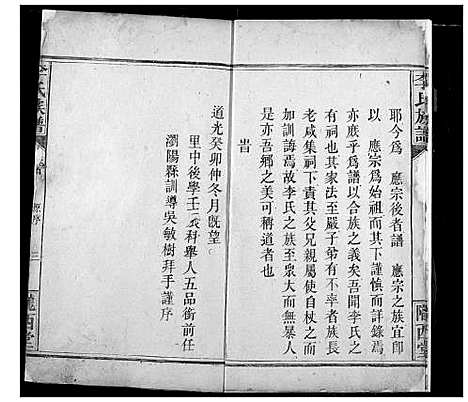 李氏族譜
隴西堂
耶今爲　應宗後者譜　應宗之族宜卽
以　應宗爲始祖而其下謹愼而詳錄焉
亦庶乎爲譜以合族之義矣吾聞李氏之
有祠也其家法至嚴子弟有不率者族長
老咸集祠下責其父兄親屬使自杖之而
加訓誨焉故李氏之族至衆大而無暴人
是亦吾鄉之美可稱道者也
旹
道光癸卯仲冬月旣望
里中後學壬戌科舉人五品銜前任
瀏陽縣訓導吳敏樹拜手謹序
李氏族譜
原序
三
隴西堂